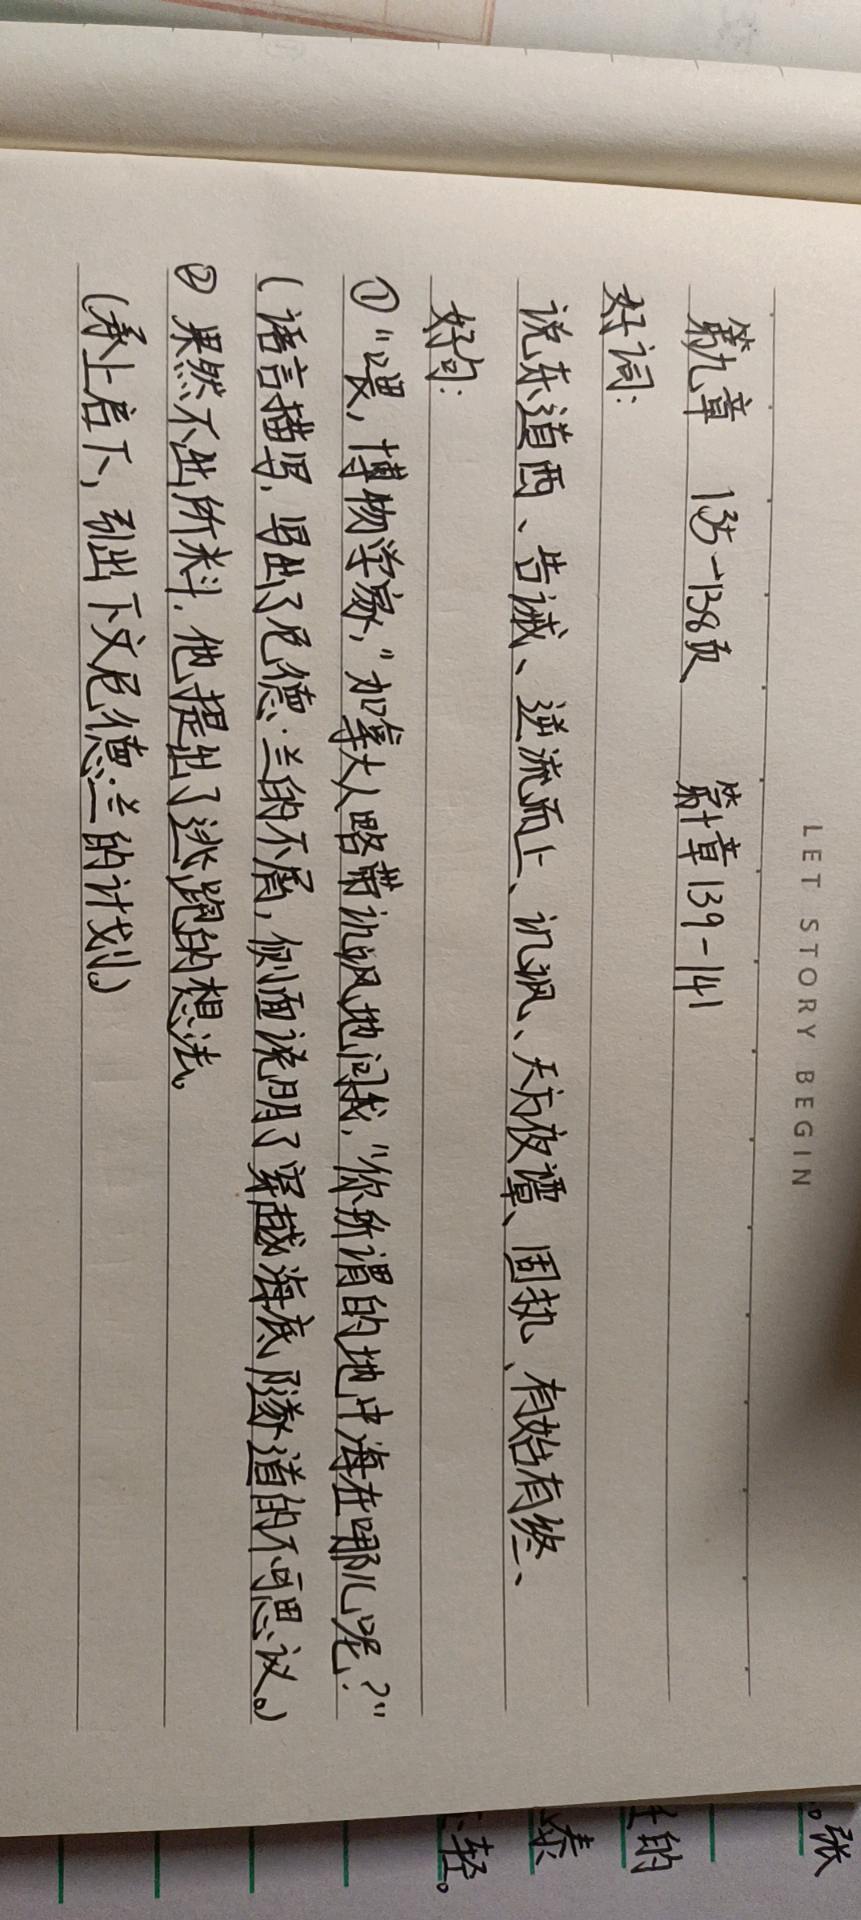 LET STORY BEGIN
第九章 135-138页 第十章139-141
好词:
说东道西、告诫、逆流而上、讥讽、天方夜谭、固执、有始有终、
好句:
①“喂,博物学家,”加拿大人略带讥讽地问我,“你所谓的地中海在哪儿呢?”
(语言描写,写出了尼德·兰的不屑,侧面说明了穿越海底隧道的不可思议。)
②果然不出所料,他提出了逃跑的想法。
(承上启下,引出下文尼德·兰的计划。)
张
的
泰
轻。